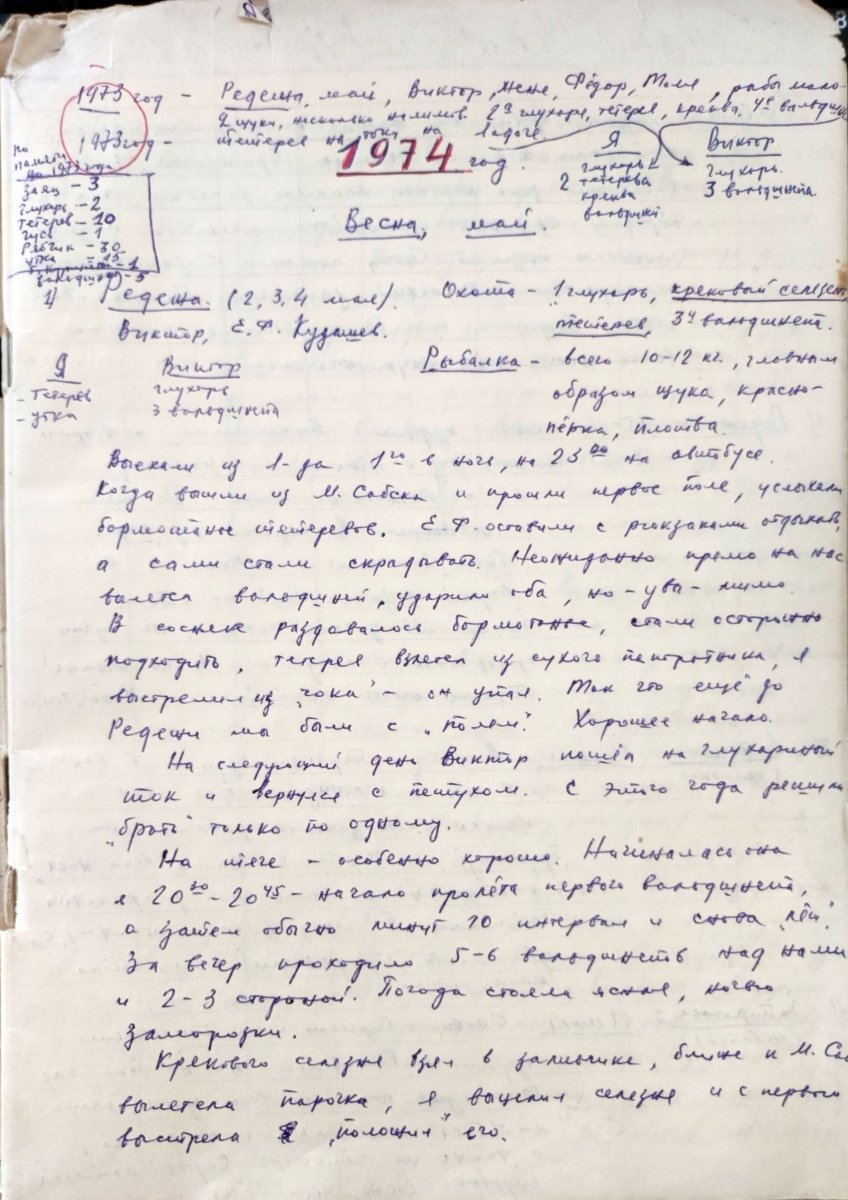 1973 год - Редежа, май, Виктор, Женя, Фёдор, Толя, рыбы мало-
2 щуки, несколько налимов. 2а глухаря, тетерев, кряква. 4е вальдшне
1973 год - тетерев на току на Ладоге
1974 год.
по
памяти
за 1973 года
Заяц - 3
глухарь - 2
тетерев - 10
гусь - 1
Рябчик - 30
утка - 15
вальдшнеп - 5
Я
глухарь
2 тетерева
кряква
Виктор
глухарь.
3 вальдшнепа
Весна, май.
1) Редежа. (2, 3, 4 мая). Охота - 1 глухарь, кряковый селезень
Виктор, Е.Ф. Кудашев. тетерев, 3и вальдшнепа.
Я
- тетерев
- утка
Виктор
глухарь
3 вальдшнепа
Рыбалка - всего 10-12 кг., главным
образом щука, красно-
пёрка, плотва.
Выехали из 1-за 1го в ночь, на 23 00 на автобусе.
Когда вышли из М. Сабска и прошли первое поле, услыхали
бормотанье тетеревов. Е.Ф. оставили с рюкзаками отдыхать,
а сами стали скрадывать. Неожиданно прямо на нас
валется вальдшнеп, ударили оба, но - увы - мимо.
В сосняке раздавалось бормотанье, стали осторожно
подходить, тетерев взлетел из сухого папоротника, я
выстрелил из "чока" - он упал. Так что ещё до
Редежи мы были с "полем". Хорошее начало.
На следующий день Виктор пошёл на глухариный
ток и вернулся с петухом. С этого года решили
"брать" только по одному.
На тяге - особенно хорошо. Начиналась она
в 20 30 - 20 45 - начало пролёта первого вальдшнепа,
а затем обычно минут 10 интервал и снова "лёт".
За вечер проходило 5-6 вальдшнепов над нами
и 2-3 стороной. Погода стояла ясная, ночью
заморозки.
Крякового селезня взял в заливчике, ближе к М. Саб
вылетела парочка, я выцелил селезня и с первого
выстрела "положил" его.